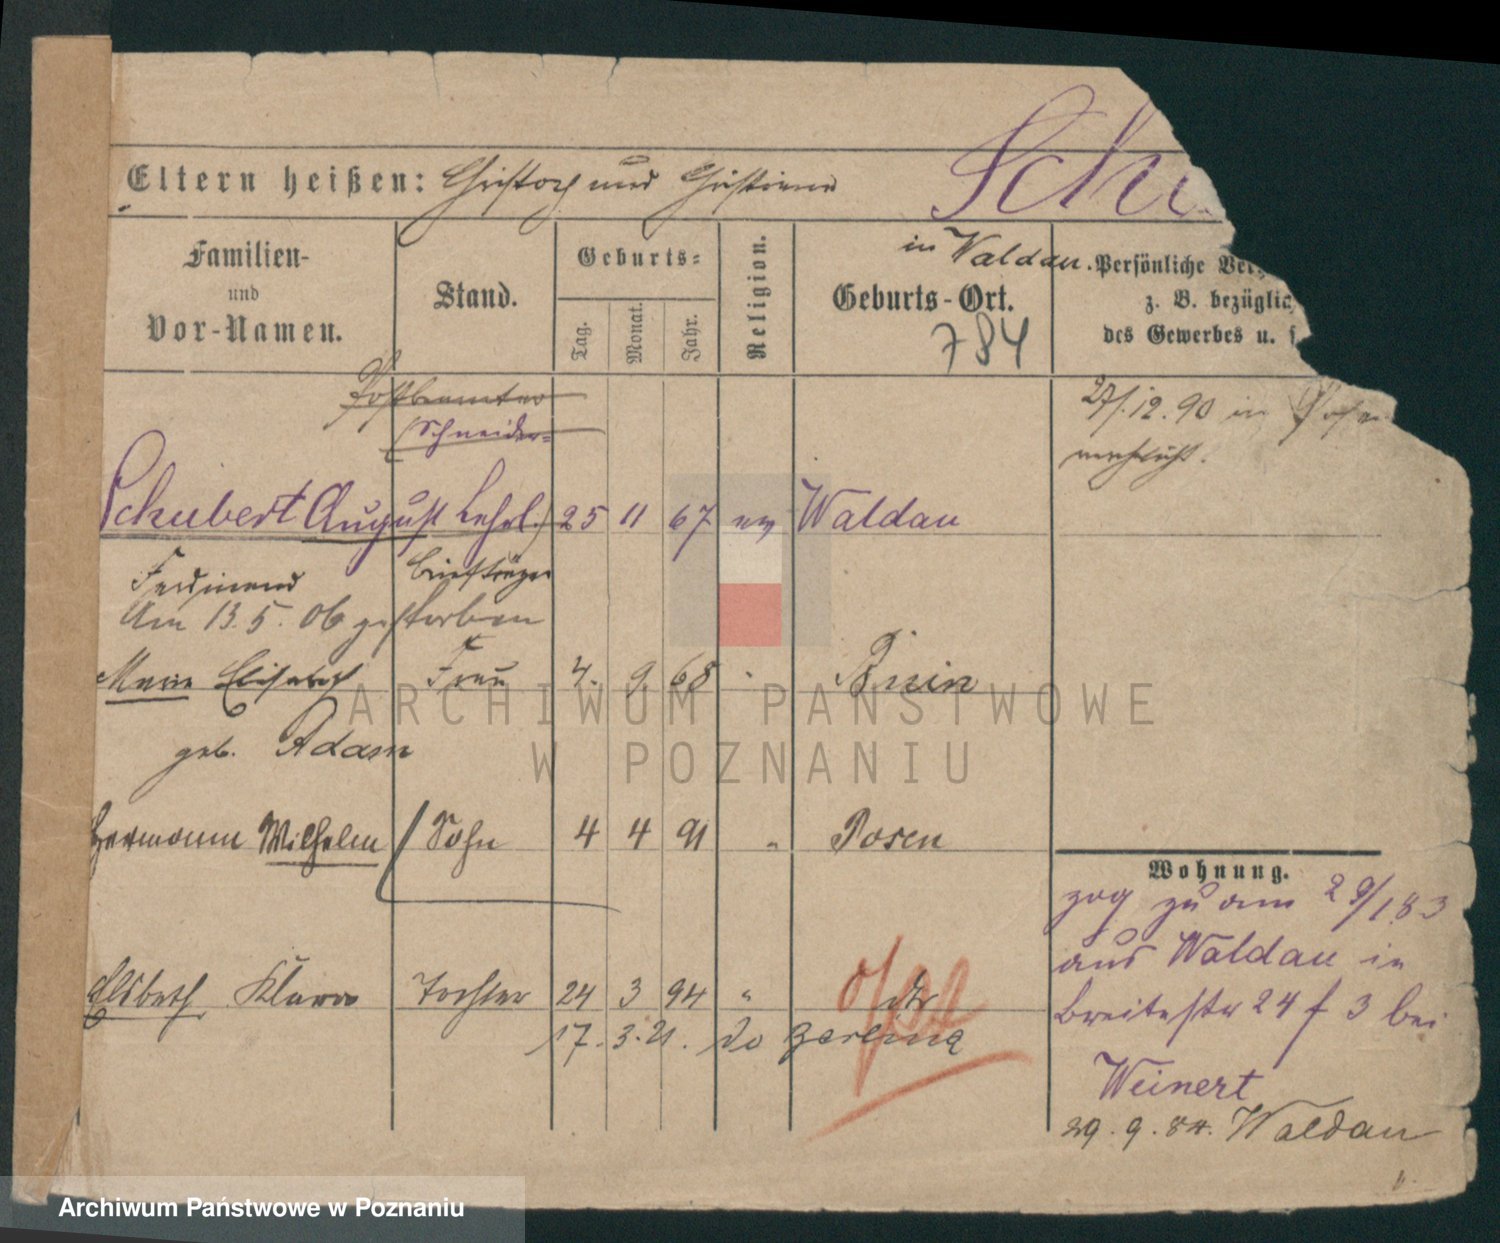 Schu
Eltern heißen: Christoph und Christiane
in Waldau.
Familien-
und
Vor-Namen.
Stand.
Geburts-
Tag.
Monat.
Jahr.
Religion.
Geburts-Ort.
784
Persönliche Ver
z. B. bezüglic
des Gewerbes u. s
Postbeamter
Schneider-
27/.12.90 in Posen
Schubert August Lehrl. 25 11 67 ev Waldau
Ferdinand Briefträger
Am 13.5.06 gestorben
Marie Elisabeth Frau 4. 9 68 Bnin
geb. Adam
Hermann Wilhelm Sohn 4 4 91 " Posen
Wohnung.
zog zu am 29/1 83
aus Waldau in
Breitestr 24 f 3 bei
Weinert
29.9.84. Waldau
Elsbeth Klara Tochter 24 3 94 "
17.3.21. do
ARCHIWUM PAŃSTWOWE
W POZNANIU
Archiwum Państwowe w Poznaniu